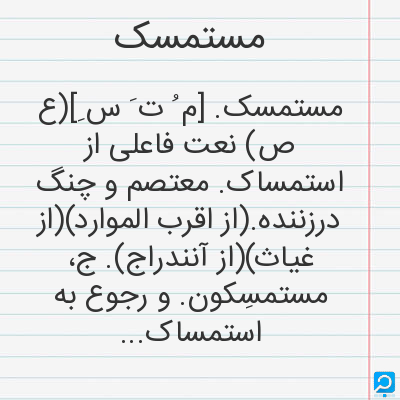 مستمسک
مستمسک. [م ُ ت َ س ِ](ع
ص) نعت فاعلی از
استمساک. معتصم و چنگ
درزننده.(از اقرب الموارد)(از
غیاث)(از آنندراج). ج،
مستمسِکون. و رجوع به
استمساک...